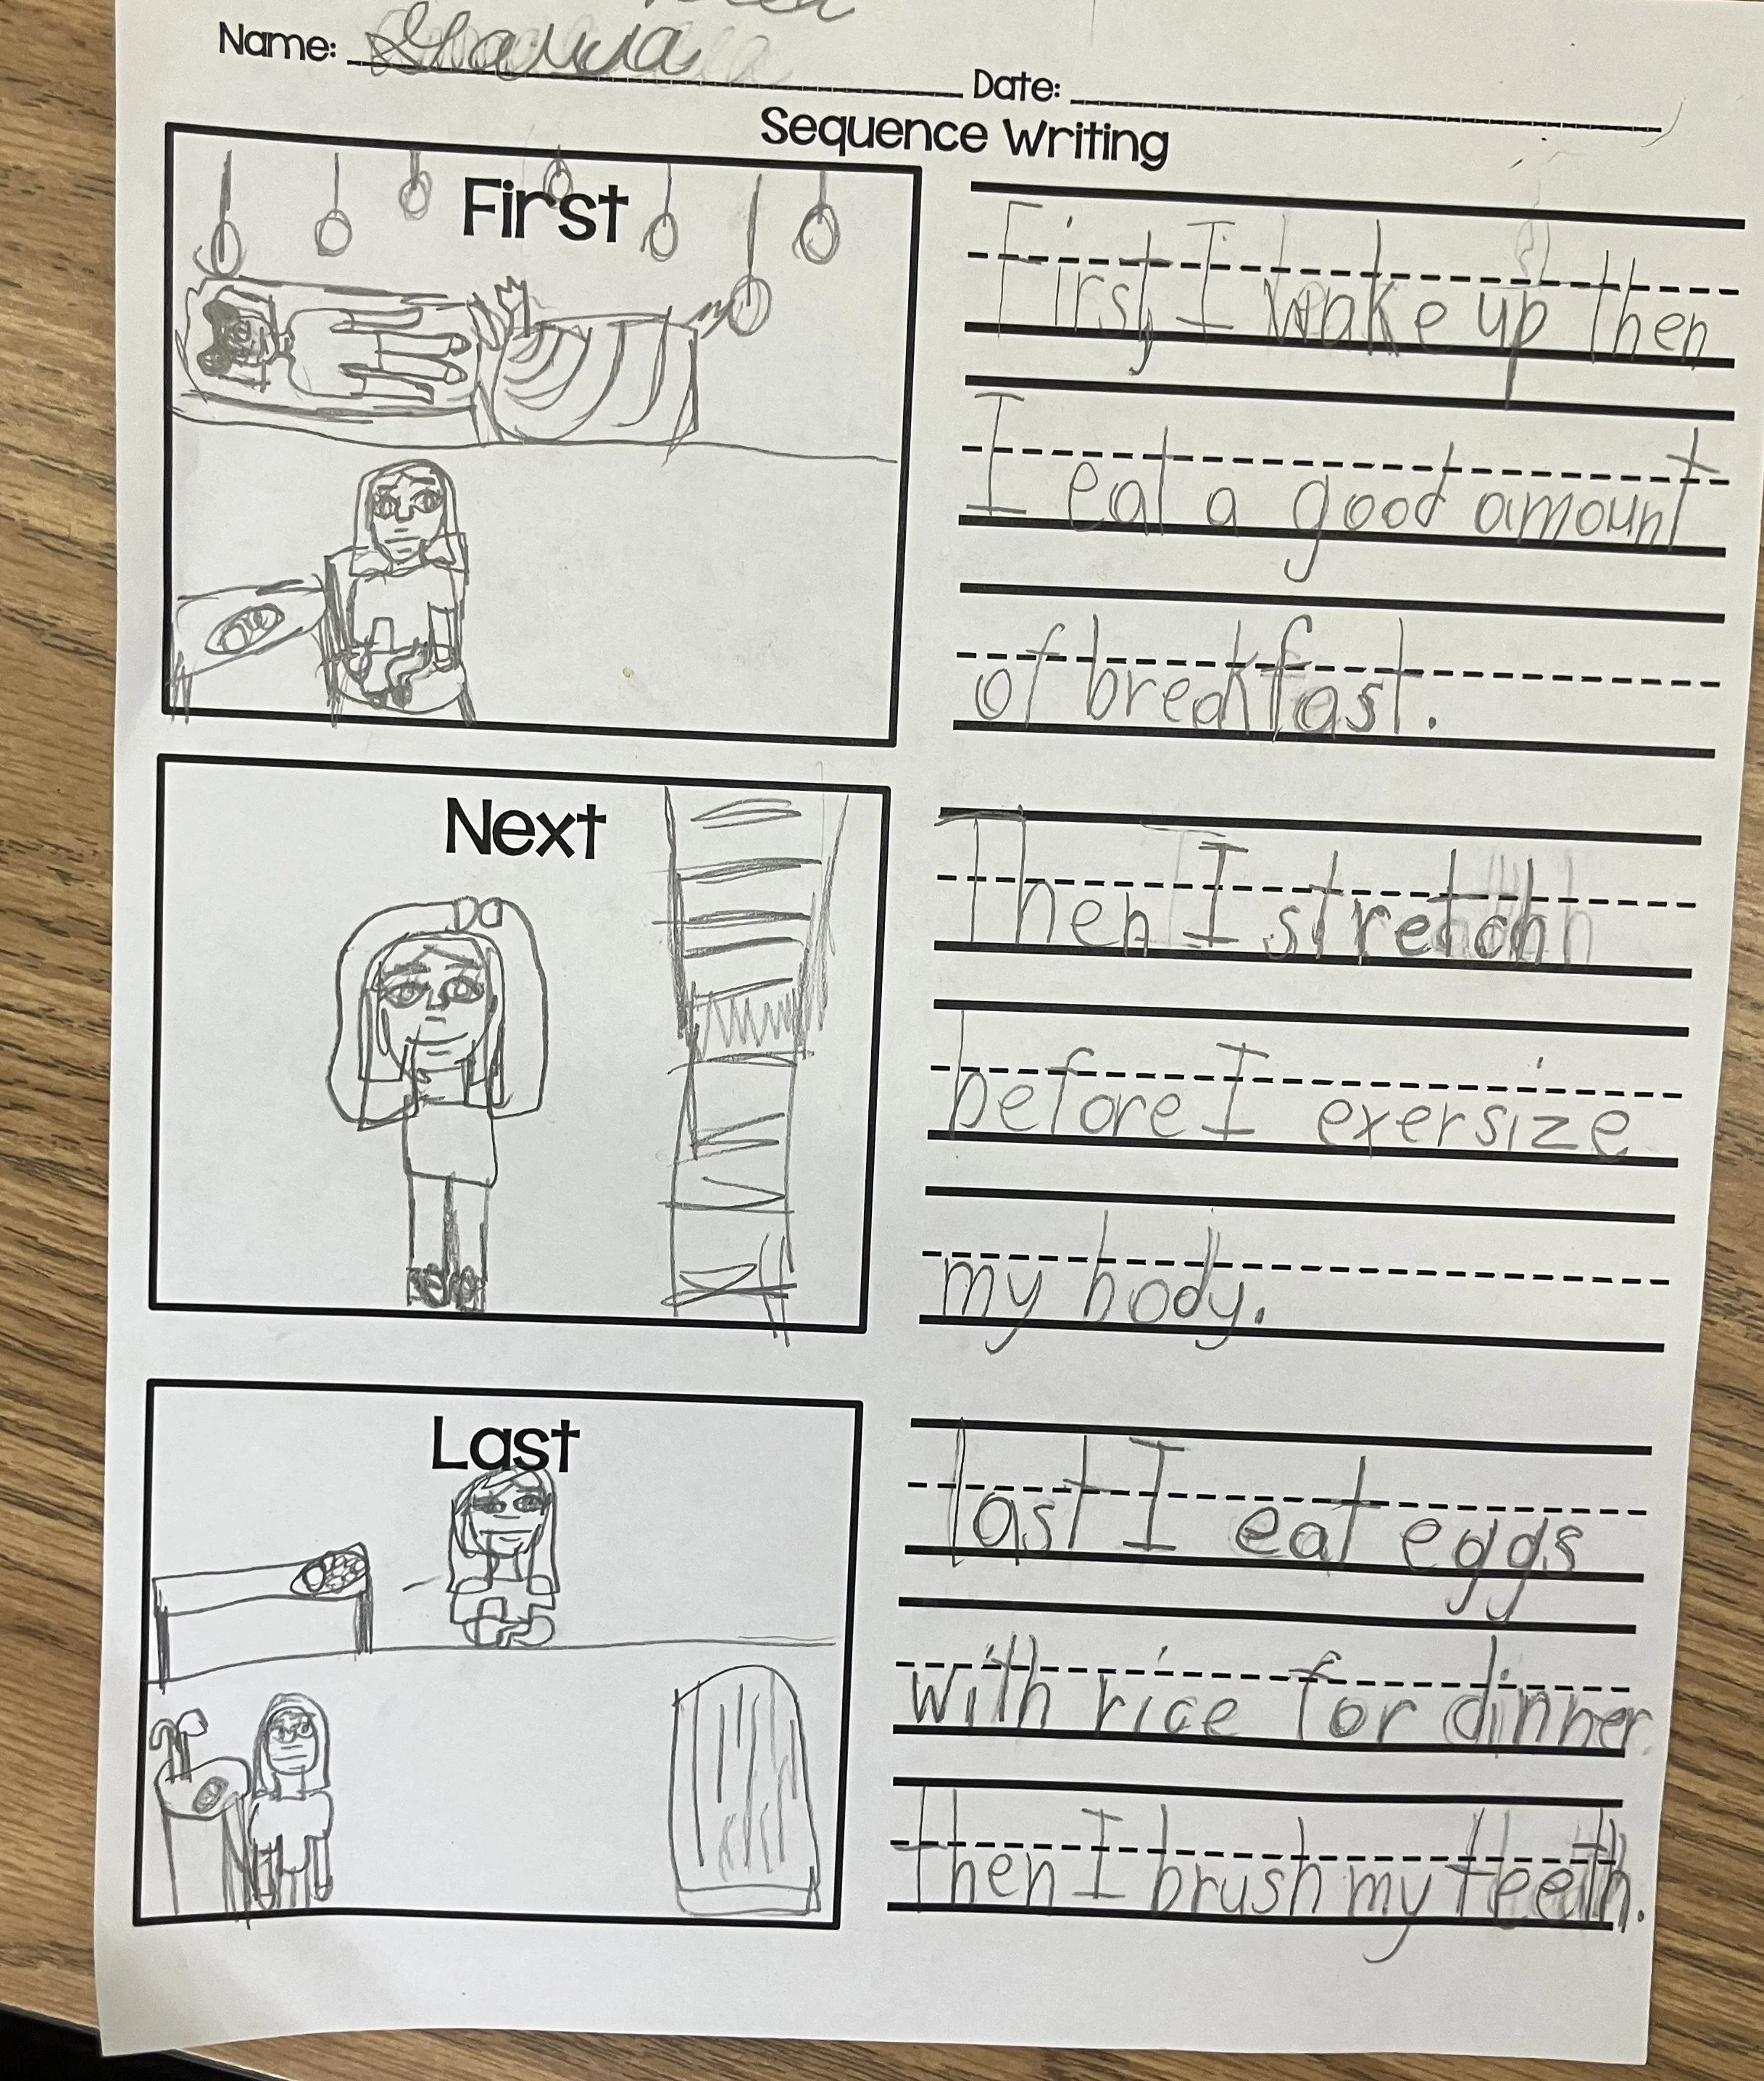 Name: Date:
Sequence Writing
First
First, I wake up then
I eat a good amount
of breakfast.
Next
Then I stretch
before I exersize
my body.
Last
last I eat eggs
with rice for dinner.
then I brush my teeth.